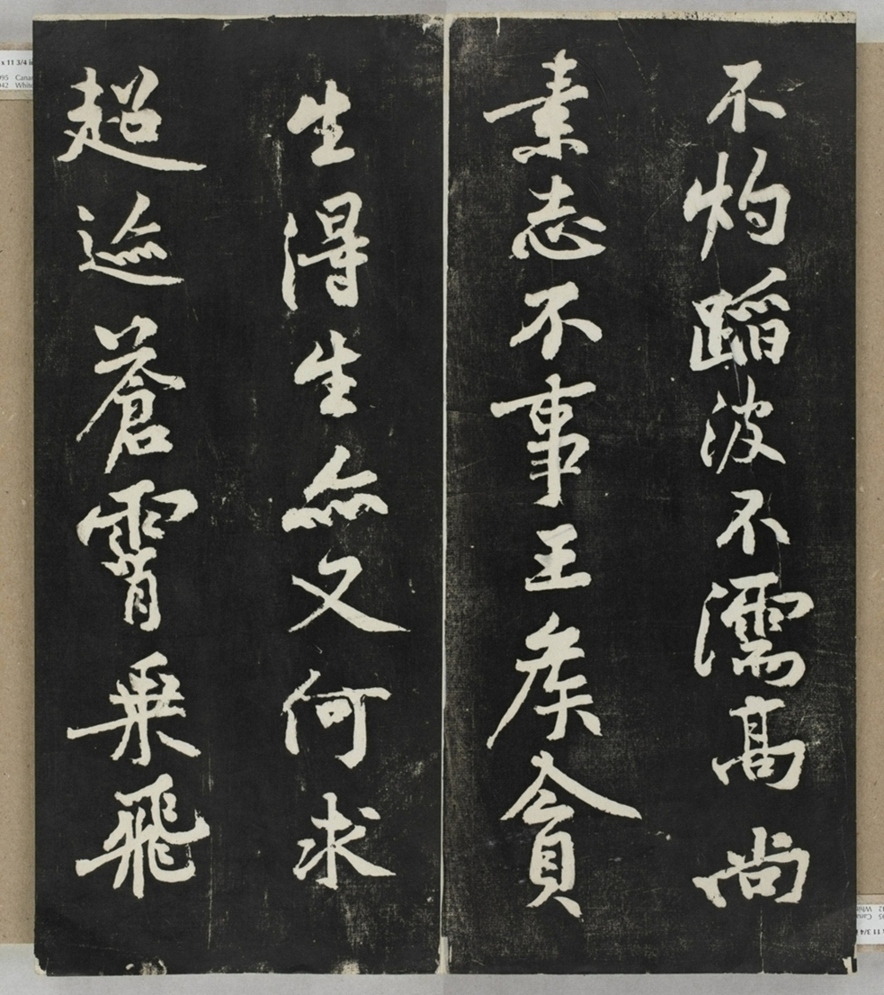 不灼蹈波不濡高尚
素志不事王侯貪
生得生亦又何求
超迹蒼霄乗飛